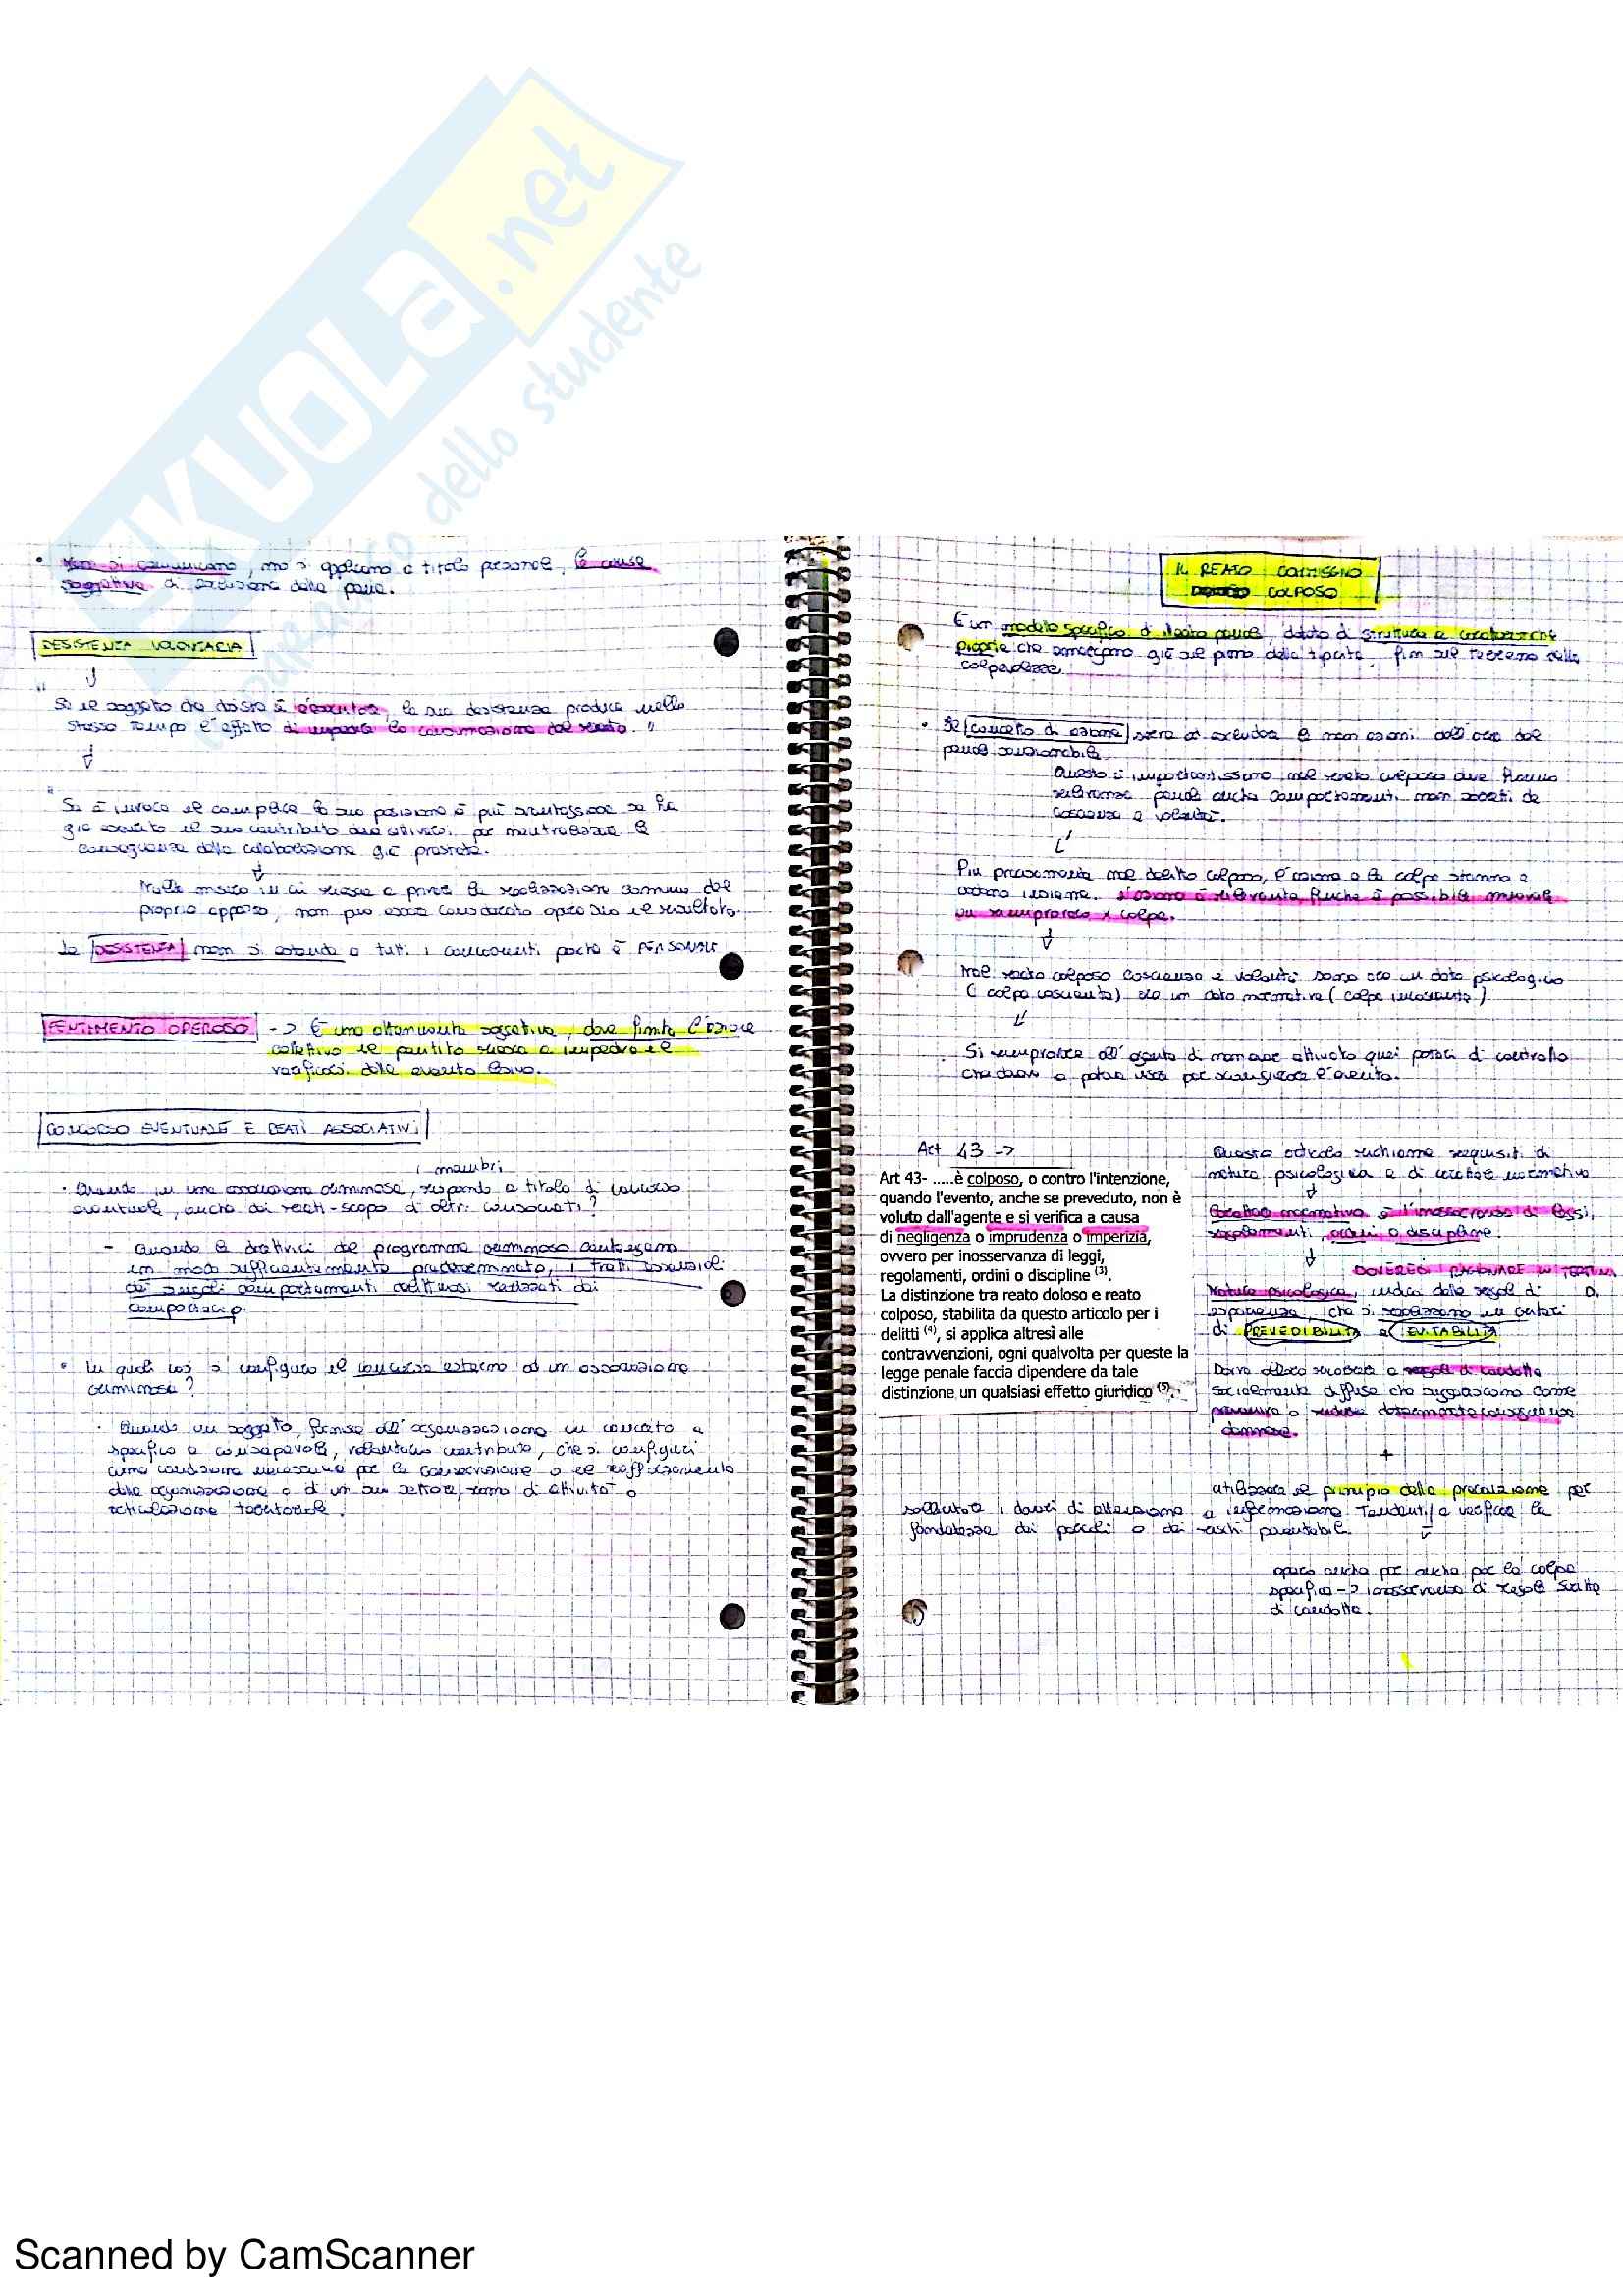 SKUOLA.net
dello studente
• Non si comunicano, ma si applicano a titolo personale, le cause
soggettive di esclusione della pena.
DESISTENZA VOLONTARIA
Se il soggetto che desiste è esecutore, la sua desistenza produce nello
stesso tempo l'effetto di impedire la consumazione del reato. "
Se è invece il complice la sua posizione è più se ha
già eseguito il suo contributo deve attivarsi per neutralizzare le
conseguenze della collaborazione già prestata.
Nella misura in cui riesce a privare la realizzazione comune del
proprio apporto, non può essere considerato opera sua il risultato.
La DESISTENZA non si estende a tutti i concorrenti perché è PERSONALE
PENTIMENTO OPEROSO -> È una attenuante soggettiva, dove finita l'azione
collettiva il pentito riesce a impedire il
verificarsi dello evento lesivo.
CONCORSO EVENTUALE E REATI ASSOCIATIVI
i membri
• Quando in una associazione criminosa, rispondo a titolo di concorso
eventuale, anche dei reati-scopo di altri consociati?
- Quando le direttrici del programma criminoso contengano
in modo sufficientemente predeterminato, i tratti essenziali
dei singoli comportamenti delittuosi realizzati dai
compartecipi.
• In quali casi si configura il concorso esterno ad un associazione
criminosa?
• Quando un soggetto, fornisce all'organizzazione un concreto e
specifico e consapevole, volontario contributo, che si configuri
come condizione necessaria per la conservazione o il rafforzamento
della organizzazione o di un suo settore, ramo di attività o
articolazione territoriale.
IL REATO COMMISSIVO
COLPOSO
È un modello specifico di illecito penale, dotato di struttura e
proprie che emergono già sul piano della tipicità, fin sul terreno della
colpevolezza.
• Il concetto di azione serve ad escludere le non azioni dall'area del
penale sanzionabile.
Questo è importantissimo nel reato colposo dove hanno
rilevanza penale anche comportamenti non sorretti da
coscienza e volontà.
Più precisamente nel delitto colposo, l'azione e la colpa stanno e
cadono insieme. L'azione è rilevante finché è possibile muovere
un rimprovero x colpa.
Nel reato colposo coscienza e volontà sono ora un dato psicologico
(colpa cosciente) ora un dato normativo (colpa incosciente)
Si rimprovera all'agente di non aver attivato quei poteri di controllo
che doveva e poteva usare per scongiurare l'evento.
Art 43 ->
Art 43- .....è colposo, o contro l'intenzione,
quando l'evento, anche se preveduto, non è
voluto dall'agente e si verifica a causa
di negligenza o imprudenza o imperizia,
ovvero per inosservanza di leggi,
regolamenti, ordini o discipline (3).
La distinzione tra reato doloso e reato
colposo, stabilita da questo articolo per i
delitti (4), si applica altresì alle
contravvenzioni, ogni qualvolta per queste la
legge penale faccia dipendere da tale
distinzione un qualsiasi effetto giuridico (5).
Questo articolo richiama requisiti di
natura psicologica e di carattere normativo
Carattere normativo è l'inosservanza di leggi,
regolamenti, ordini o discipline.
DOVEREI RAGIONARE IN TERMINI
DI
Natura psicologica, indica delle regole di
esperienza, che si realizzano in criteri
di PREVEDIBILITÀ e EVITABILITÀ
Dovrò allora a regole di condotta
socialmente diffuse che suggeriscono come
prevenire o ridurre determinate conseguenze
dannose.
+
utilizzare il principio della precauzione per
sollecitare i doveri di attenzione e informazione tendenti a verificare la
fondatezza dei pericoli o dei rischi paventabili.
opera anche per anche per la colpa
specifica -> inosservanza di regole scritte
di condotta.
Scanned by CamScanner